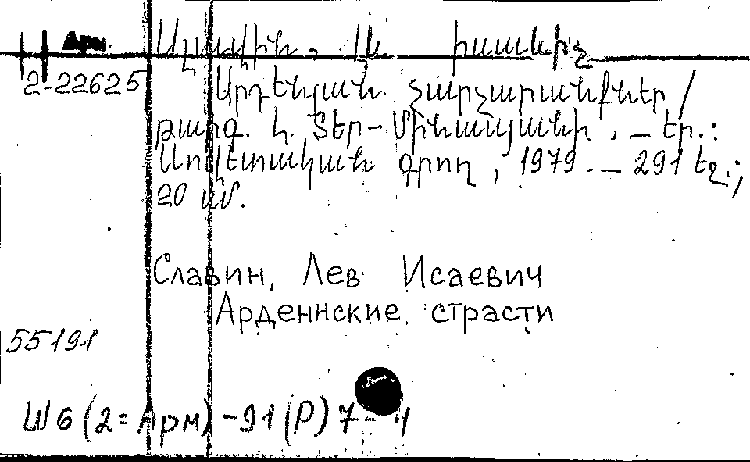 Арм. Սլավին, Լև Իսաևիչ
2-22625 Արդենյան չարչարանքներ /
թարգ. Կ. Տեր-Մինասյանի. _ Եր.:
Սովետական գրող, 1979. _ 291 էջ.;
20 սմ.
Славин, Лев Исаевич
Арденнские страсти
55191
Ш6(2=Арм)-91(Р)7-4